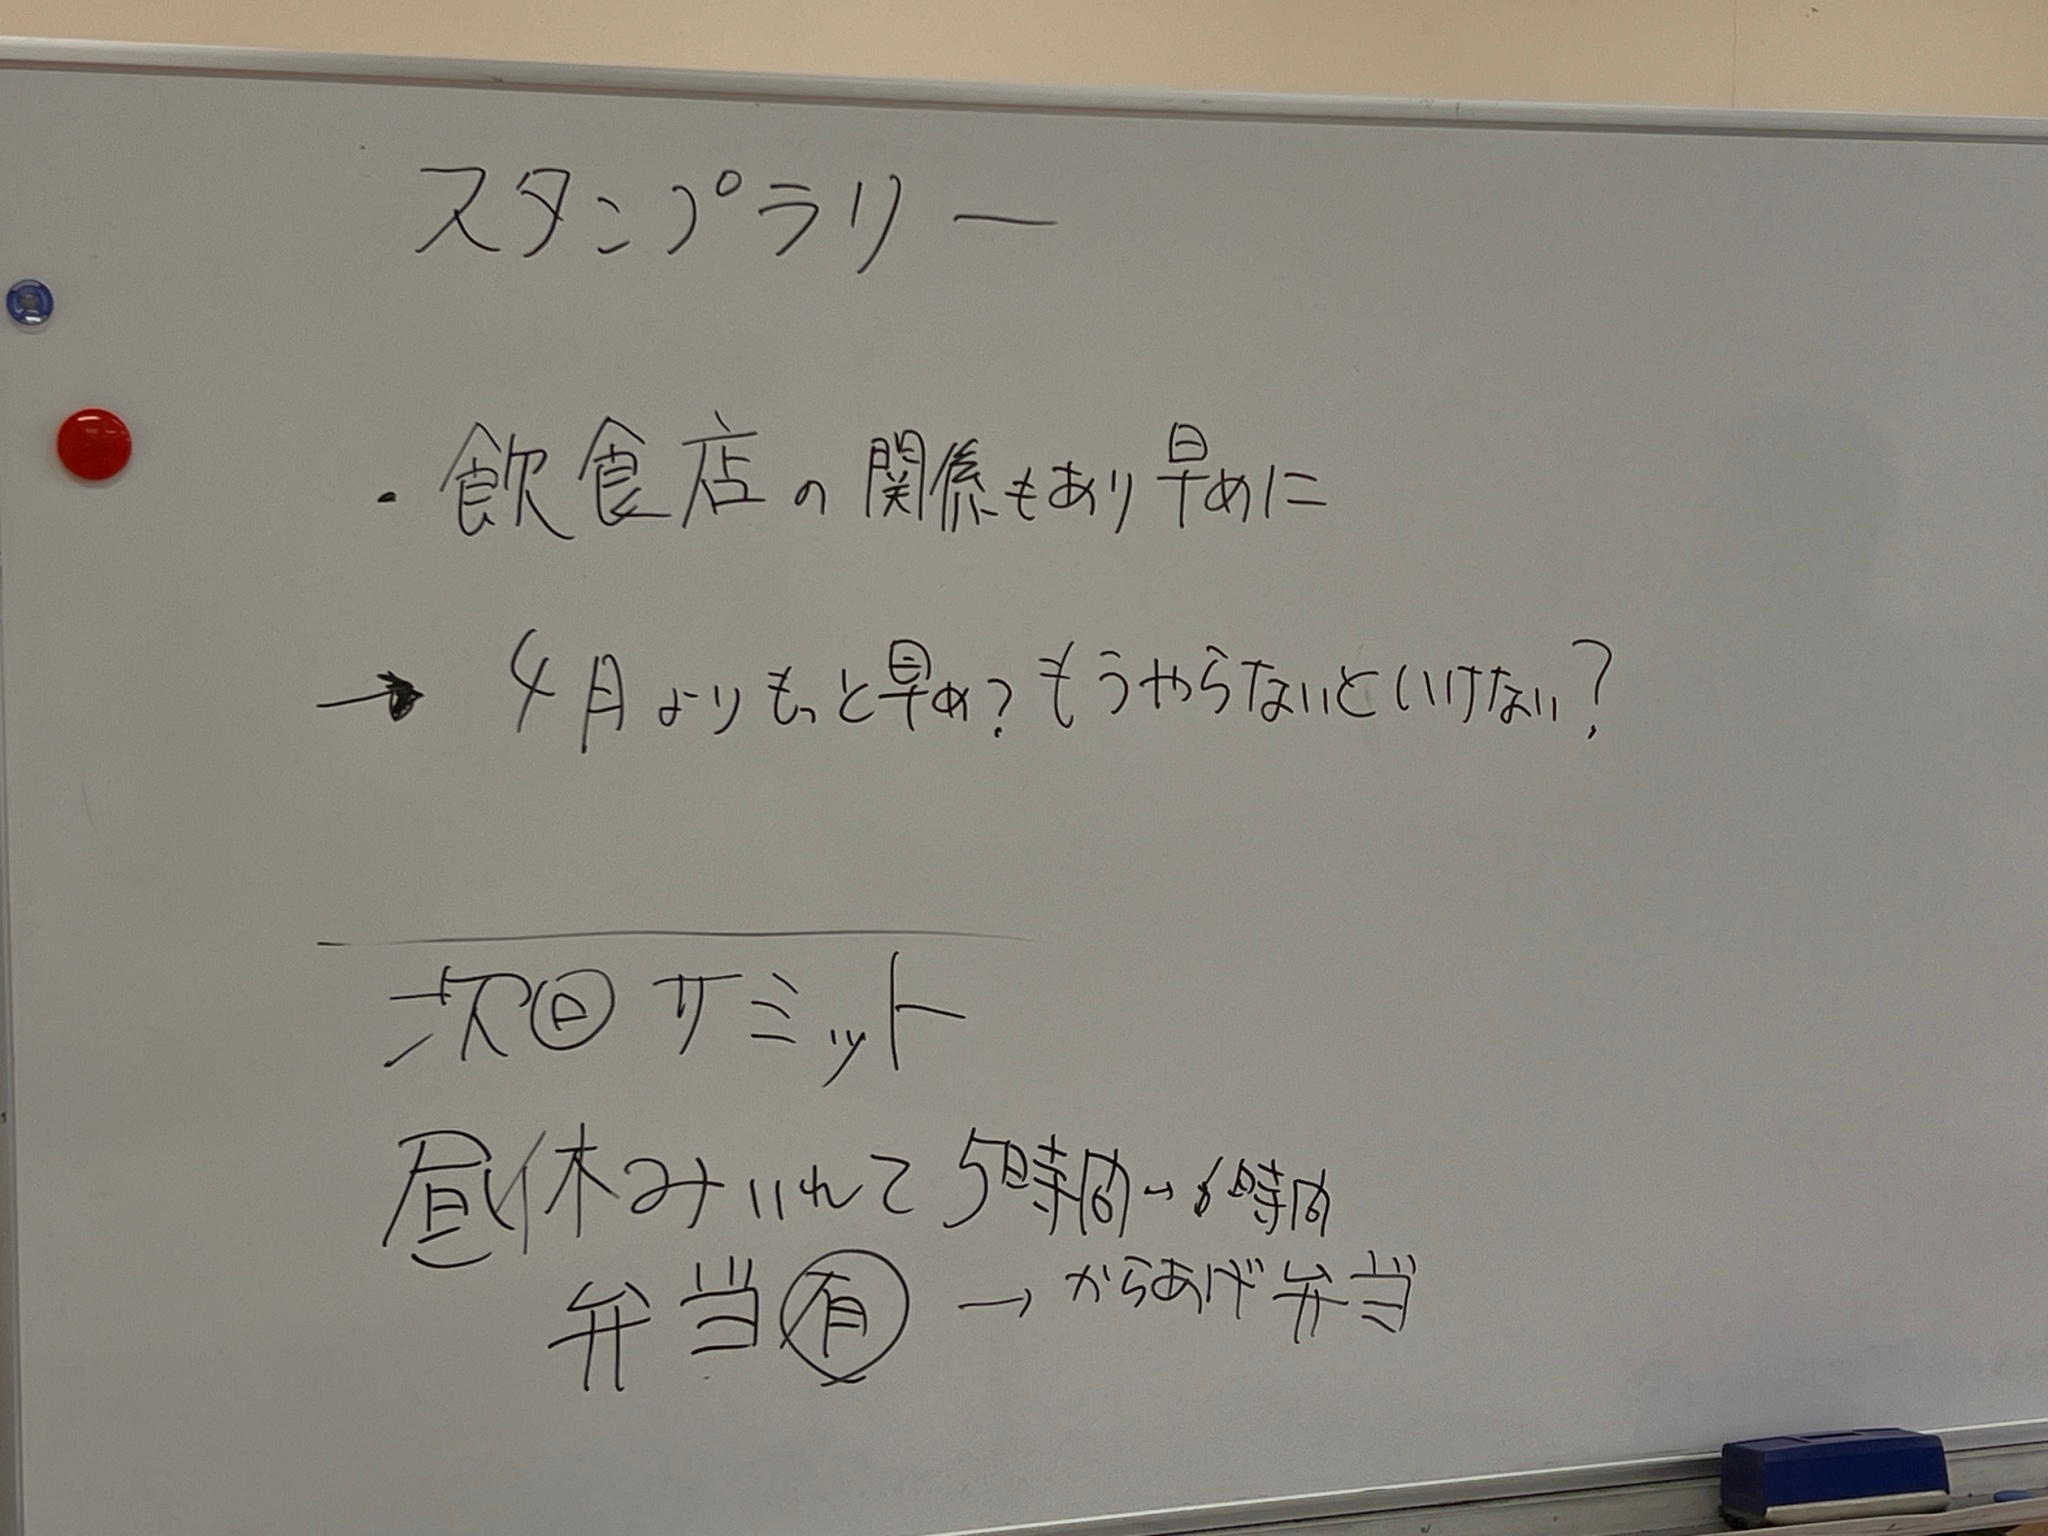 スタンプラリー
・飲食店の関係もあり早めに
→ 4月よりもっと早め?もうやらないといけない?
次回サミット
昼休みいれて5時間→6時間
弁当有 → からあげ弁当